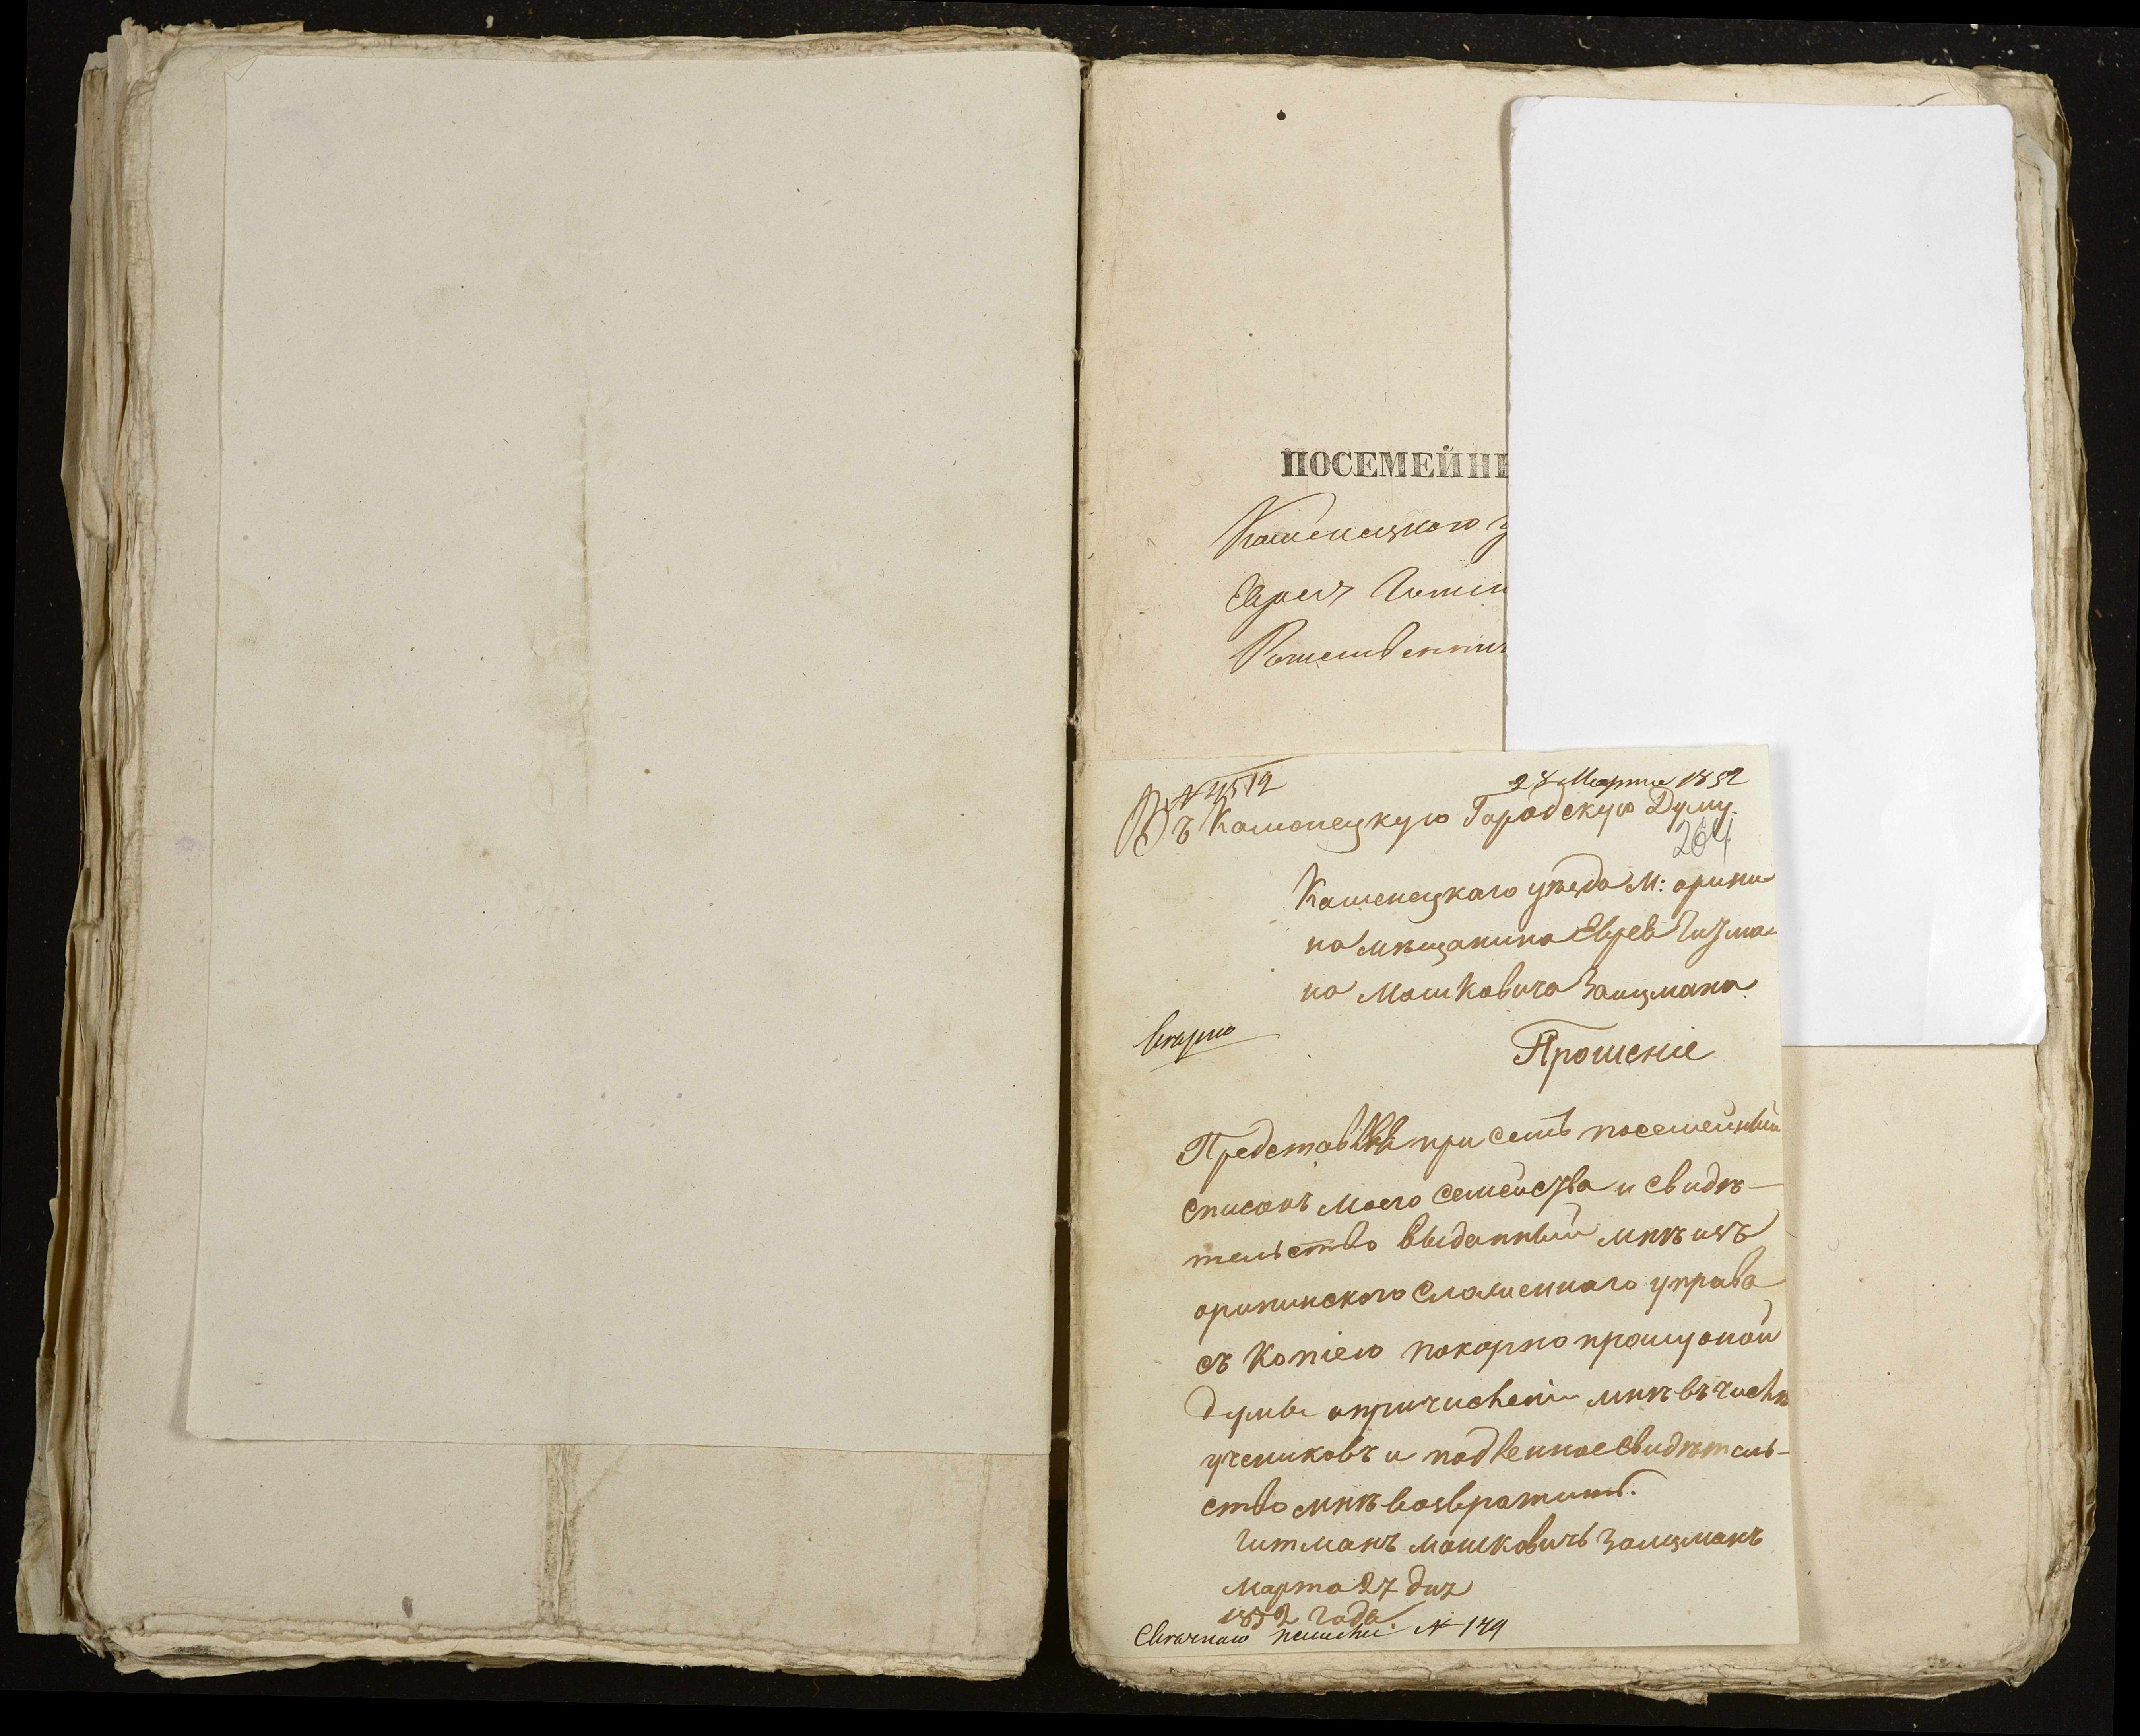 ПОСЕМЕЙН
Каменецкого у
Еврея
№ 4512
28 Марта 1852
Въ Каменецкую Городскую Думу.
264
Каменецкаго уѣзда М: орини
на мѣщанина Еврея Гитма
на Мошковича Залцмана
Прошеніе
Представивъ при семъ посемейный
списокъ моего семейства и свидѣ-
тельство выданный мнѣ изъ
орининского управа
съ копіею покорно прошу оной
думы о причислении мнѣ въ числѣ
учениковъ и подленное свидѣтель-
ство мнѣ возвратить.
Гитманъ мошковичъ Залцманъ
Марта 27 дня
1852 Года
№ 149